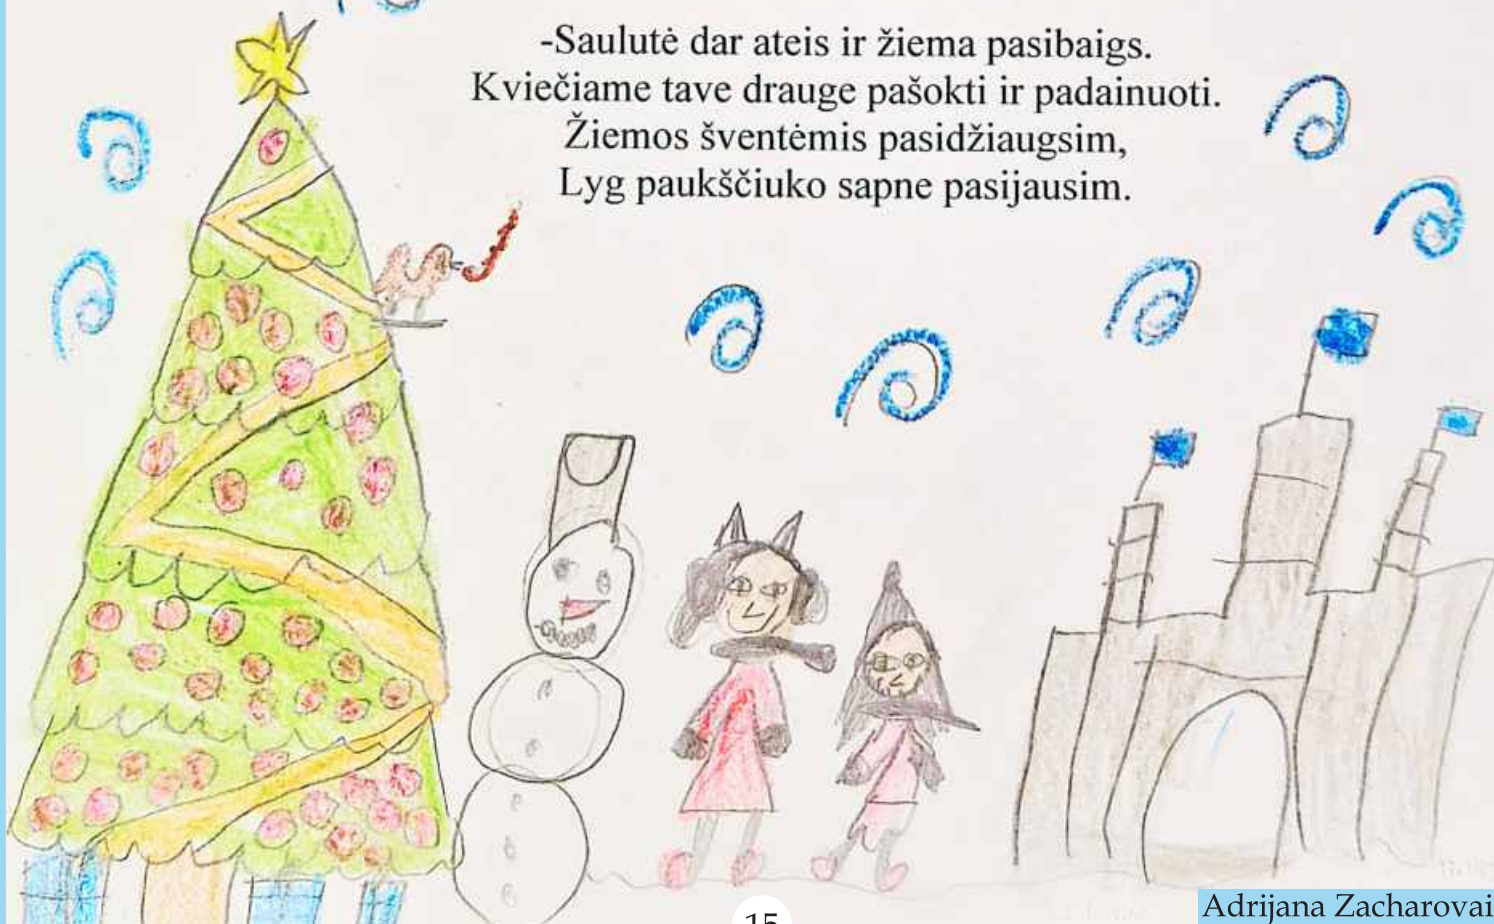 -Saulutė dar ateis ir žiema pasibaigs.
Kviečiame tave drauge pašokti ir padainuoti.
Žiemos šventėmis pasidžiaugsim,
Lyg paukščiuko sapne pasijausim.
15
Adrijana Zacharovai